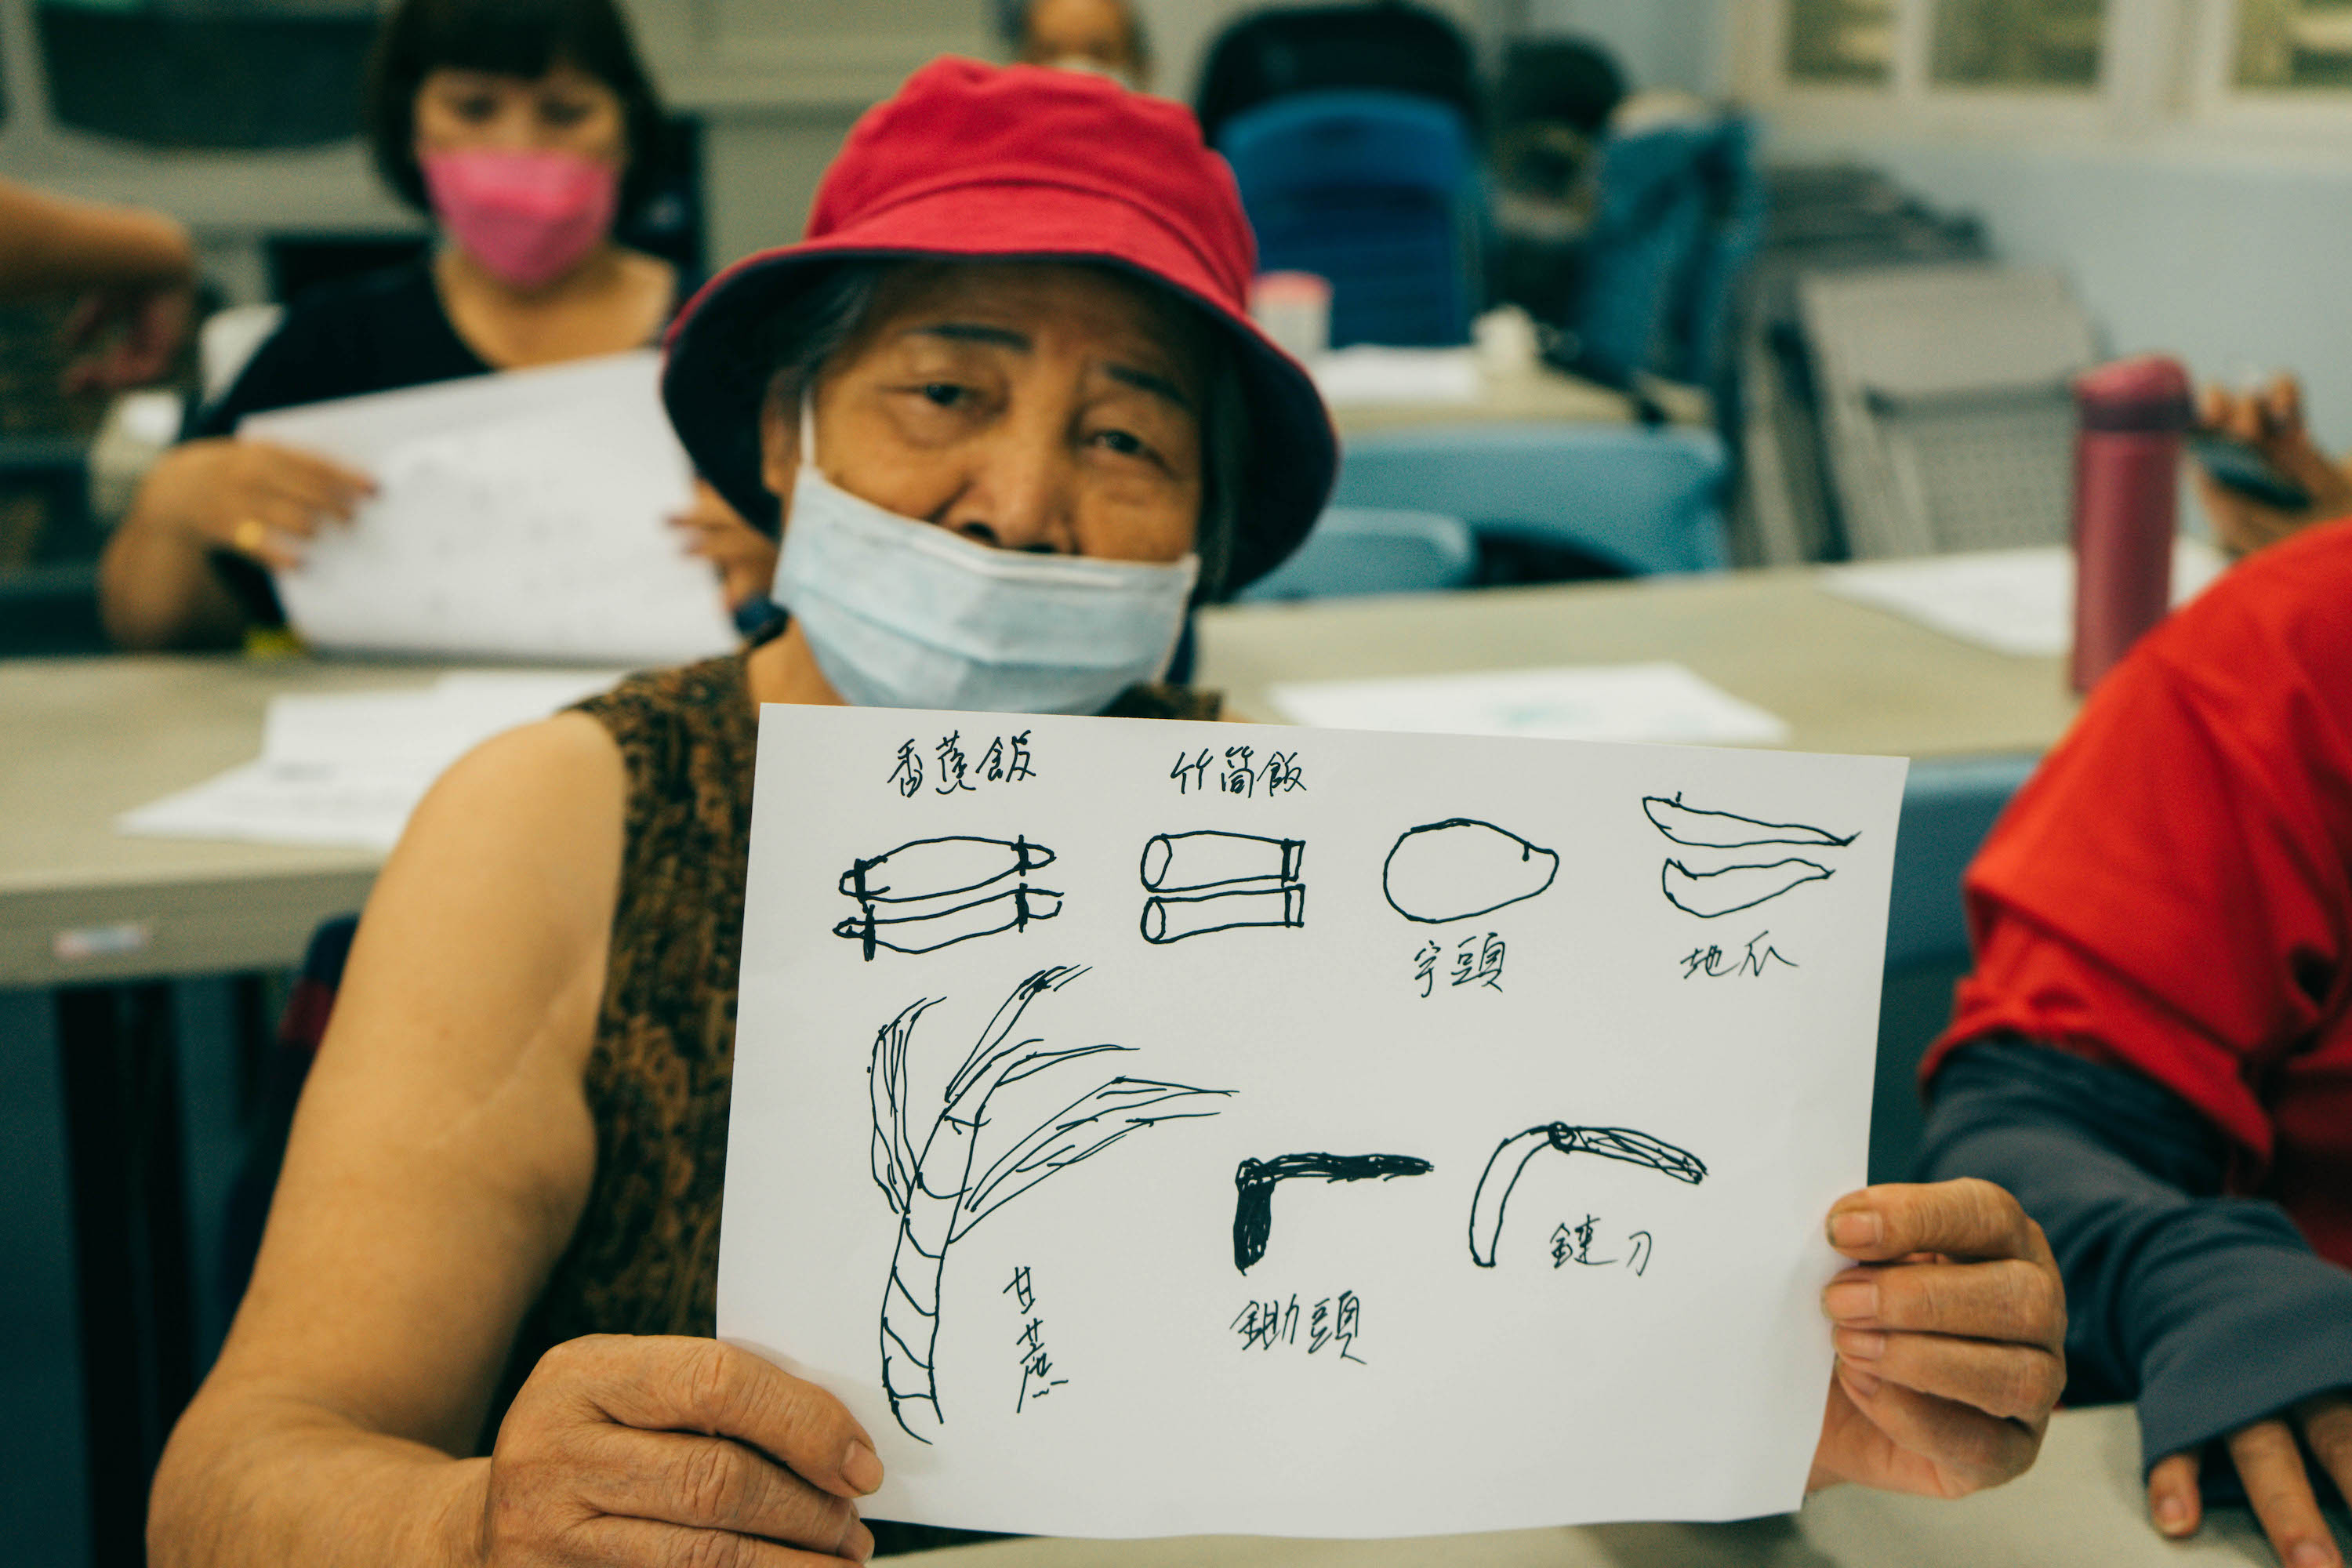 香蕉飯
竹筒飯
芋頭
地瓜
甘蔗
鋤頭
鏈刀